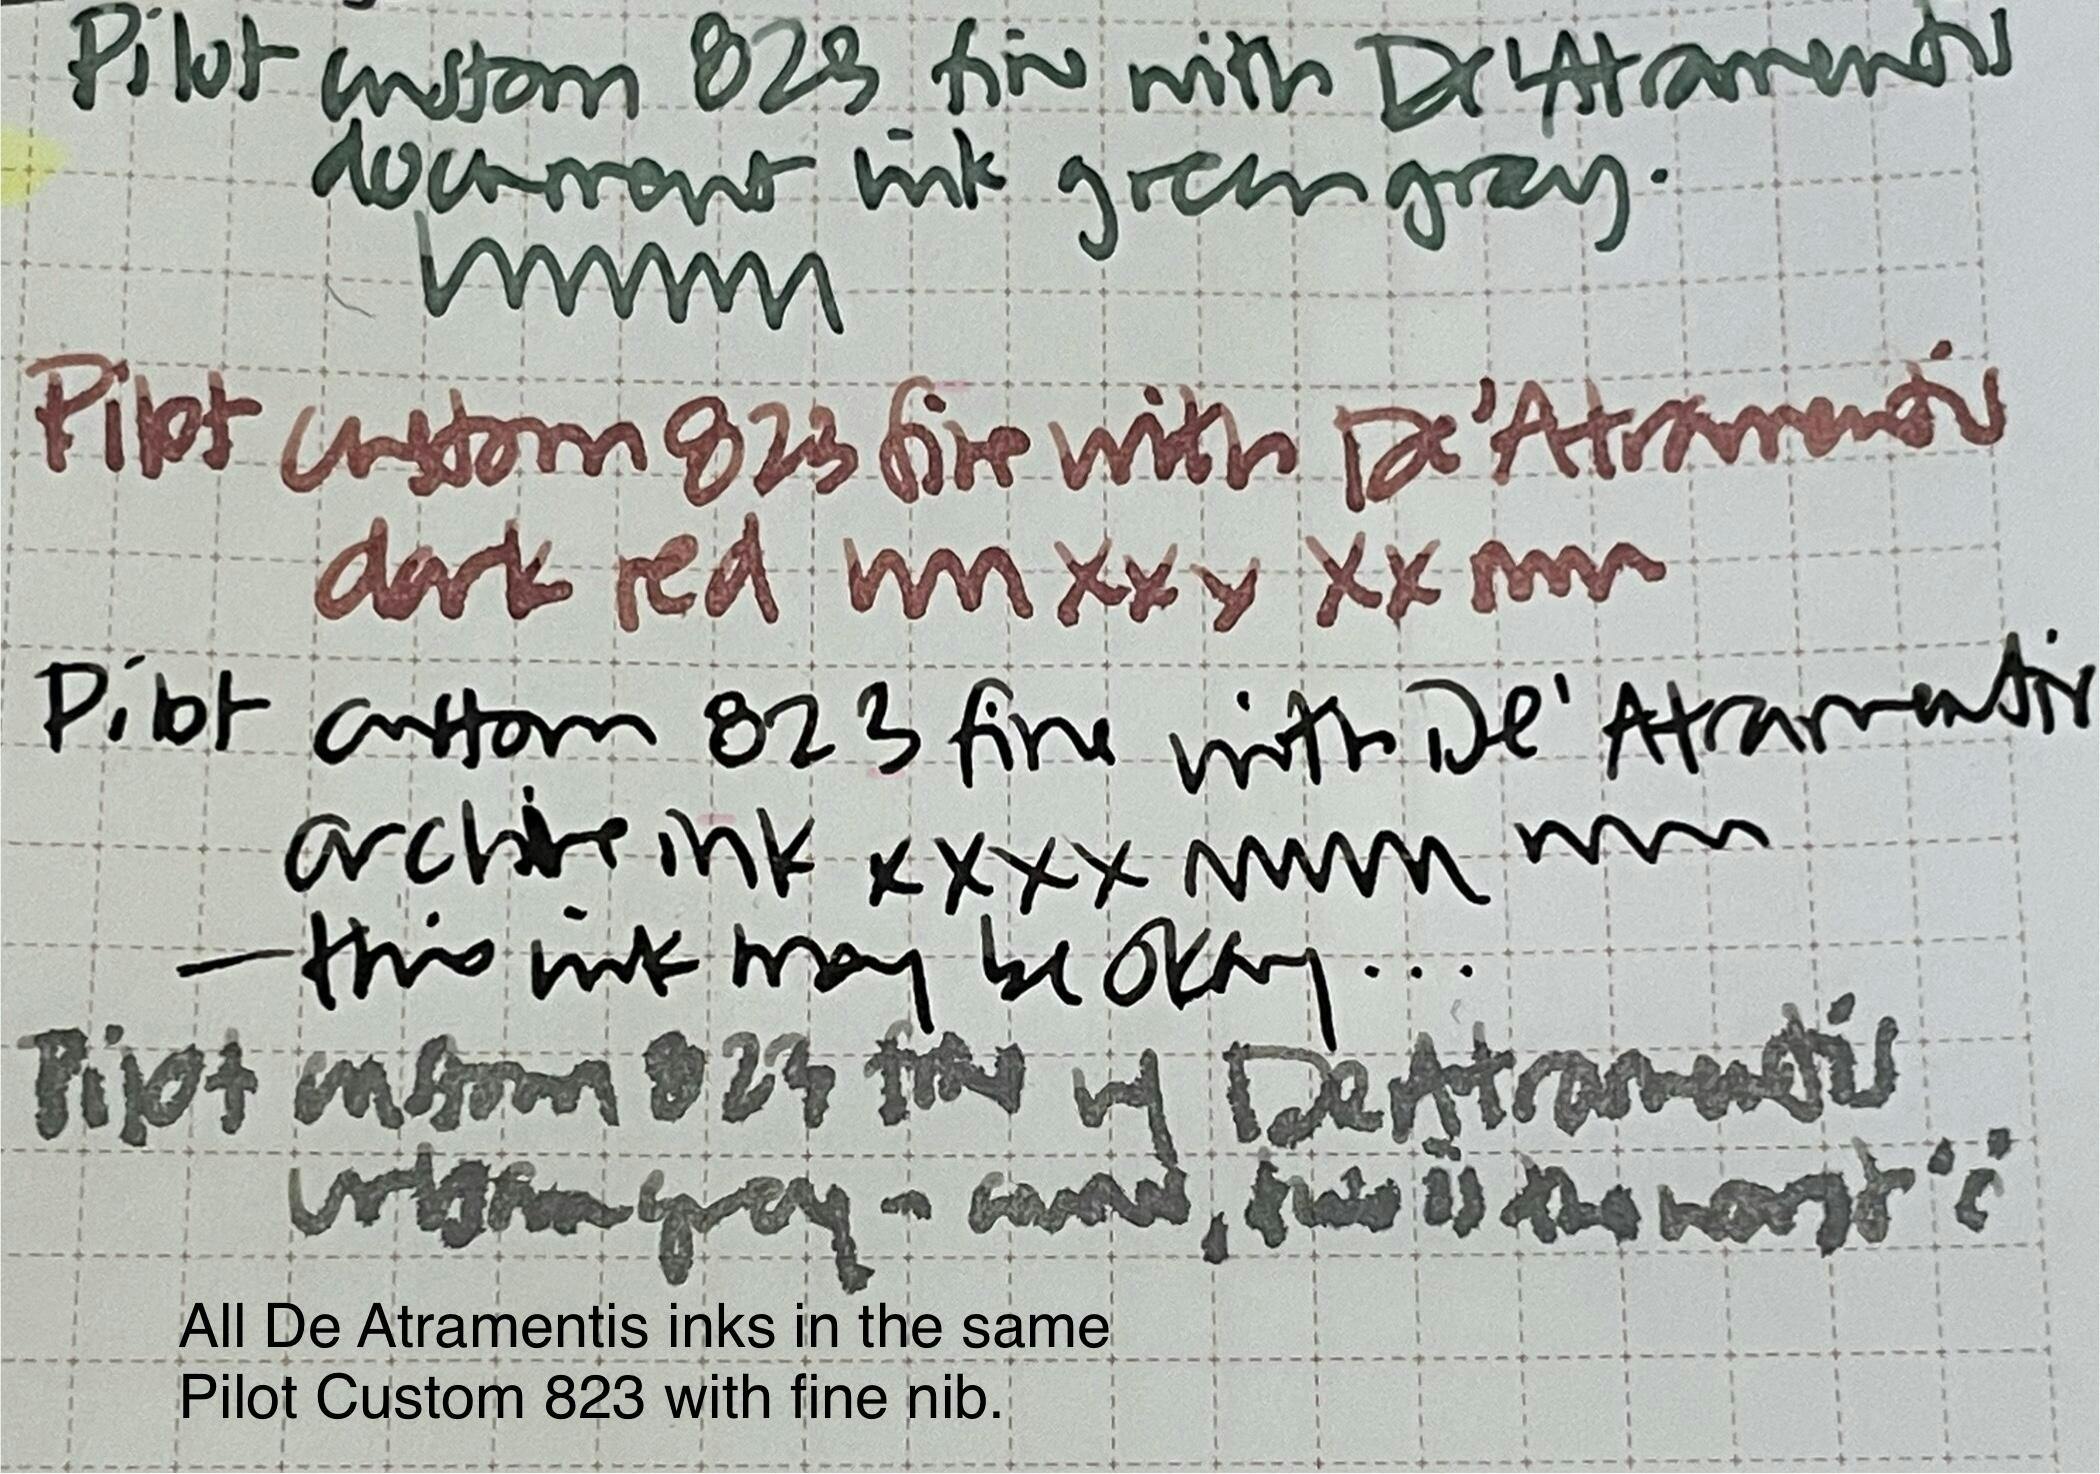 Pilot custom 823 fine with De'Atramentis
document ink green gray.
Pilot custom 823 fine with De'Atramentis
dark red nnn xxy xx nnn
Pilot custom 823 fine with De'Atramentis
archive ink xxxx nnnn nnn
— this ink may be okay...
Pilot custom 823 fine w/ DeAtramentis
urban gray - , this is the worst :(
All De Atramentis inks in the same
Pilot Custom 823 with fine nib.